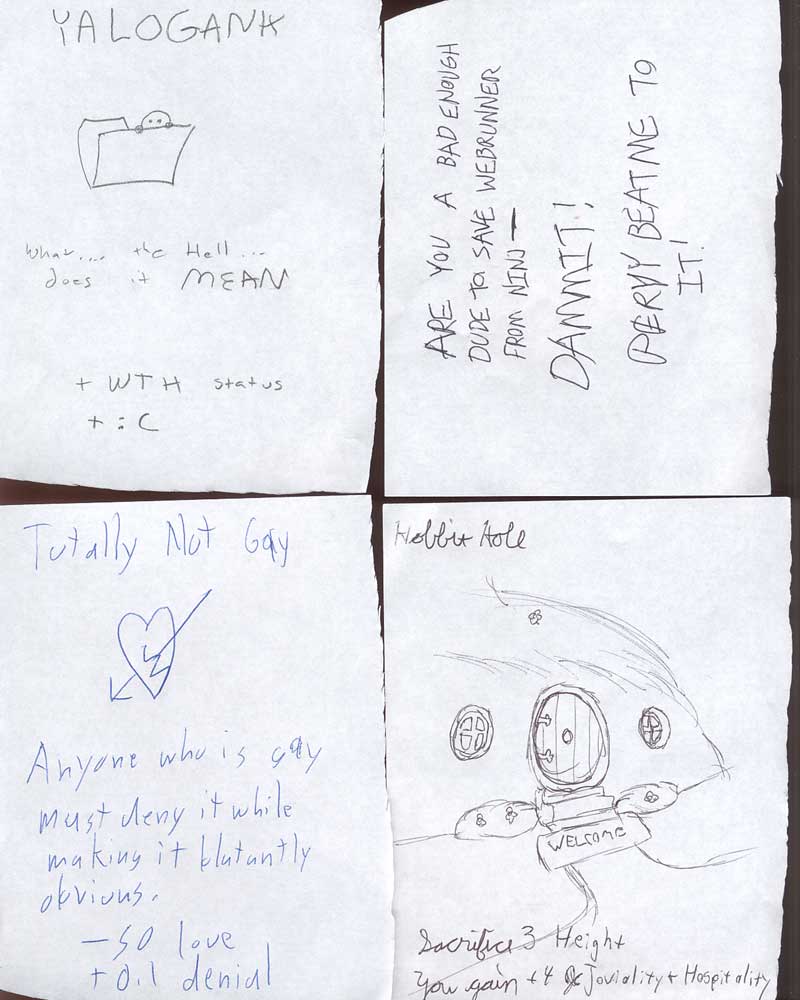 YALOGANH
What... the Hell...
does it MEAN
+ WTH status
+ :C
ARE YOU A BAD ENOUGH
DUDE TO SAVE WEBRUNNER
FROM NINJ—
DAMMIT!
PERVY BEAT ME TO
IT!
Totally Not Gay
Anyone who is gay
must deny it while
making it blatantly
obvious.
-50 love
+0.1 denial
Hobbit Hole
WELCOME
Sacrifice 3 Height
You gain +4 Joviality + Hospitality